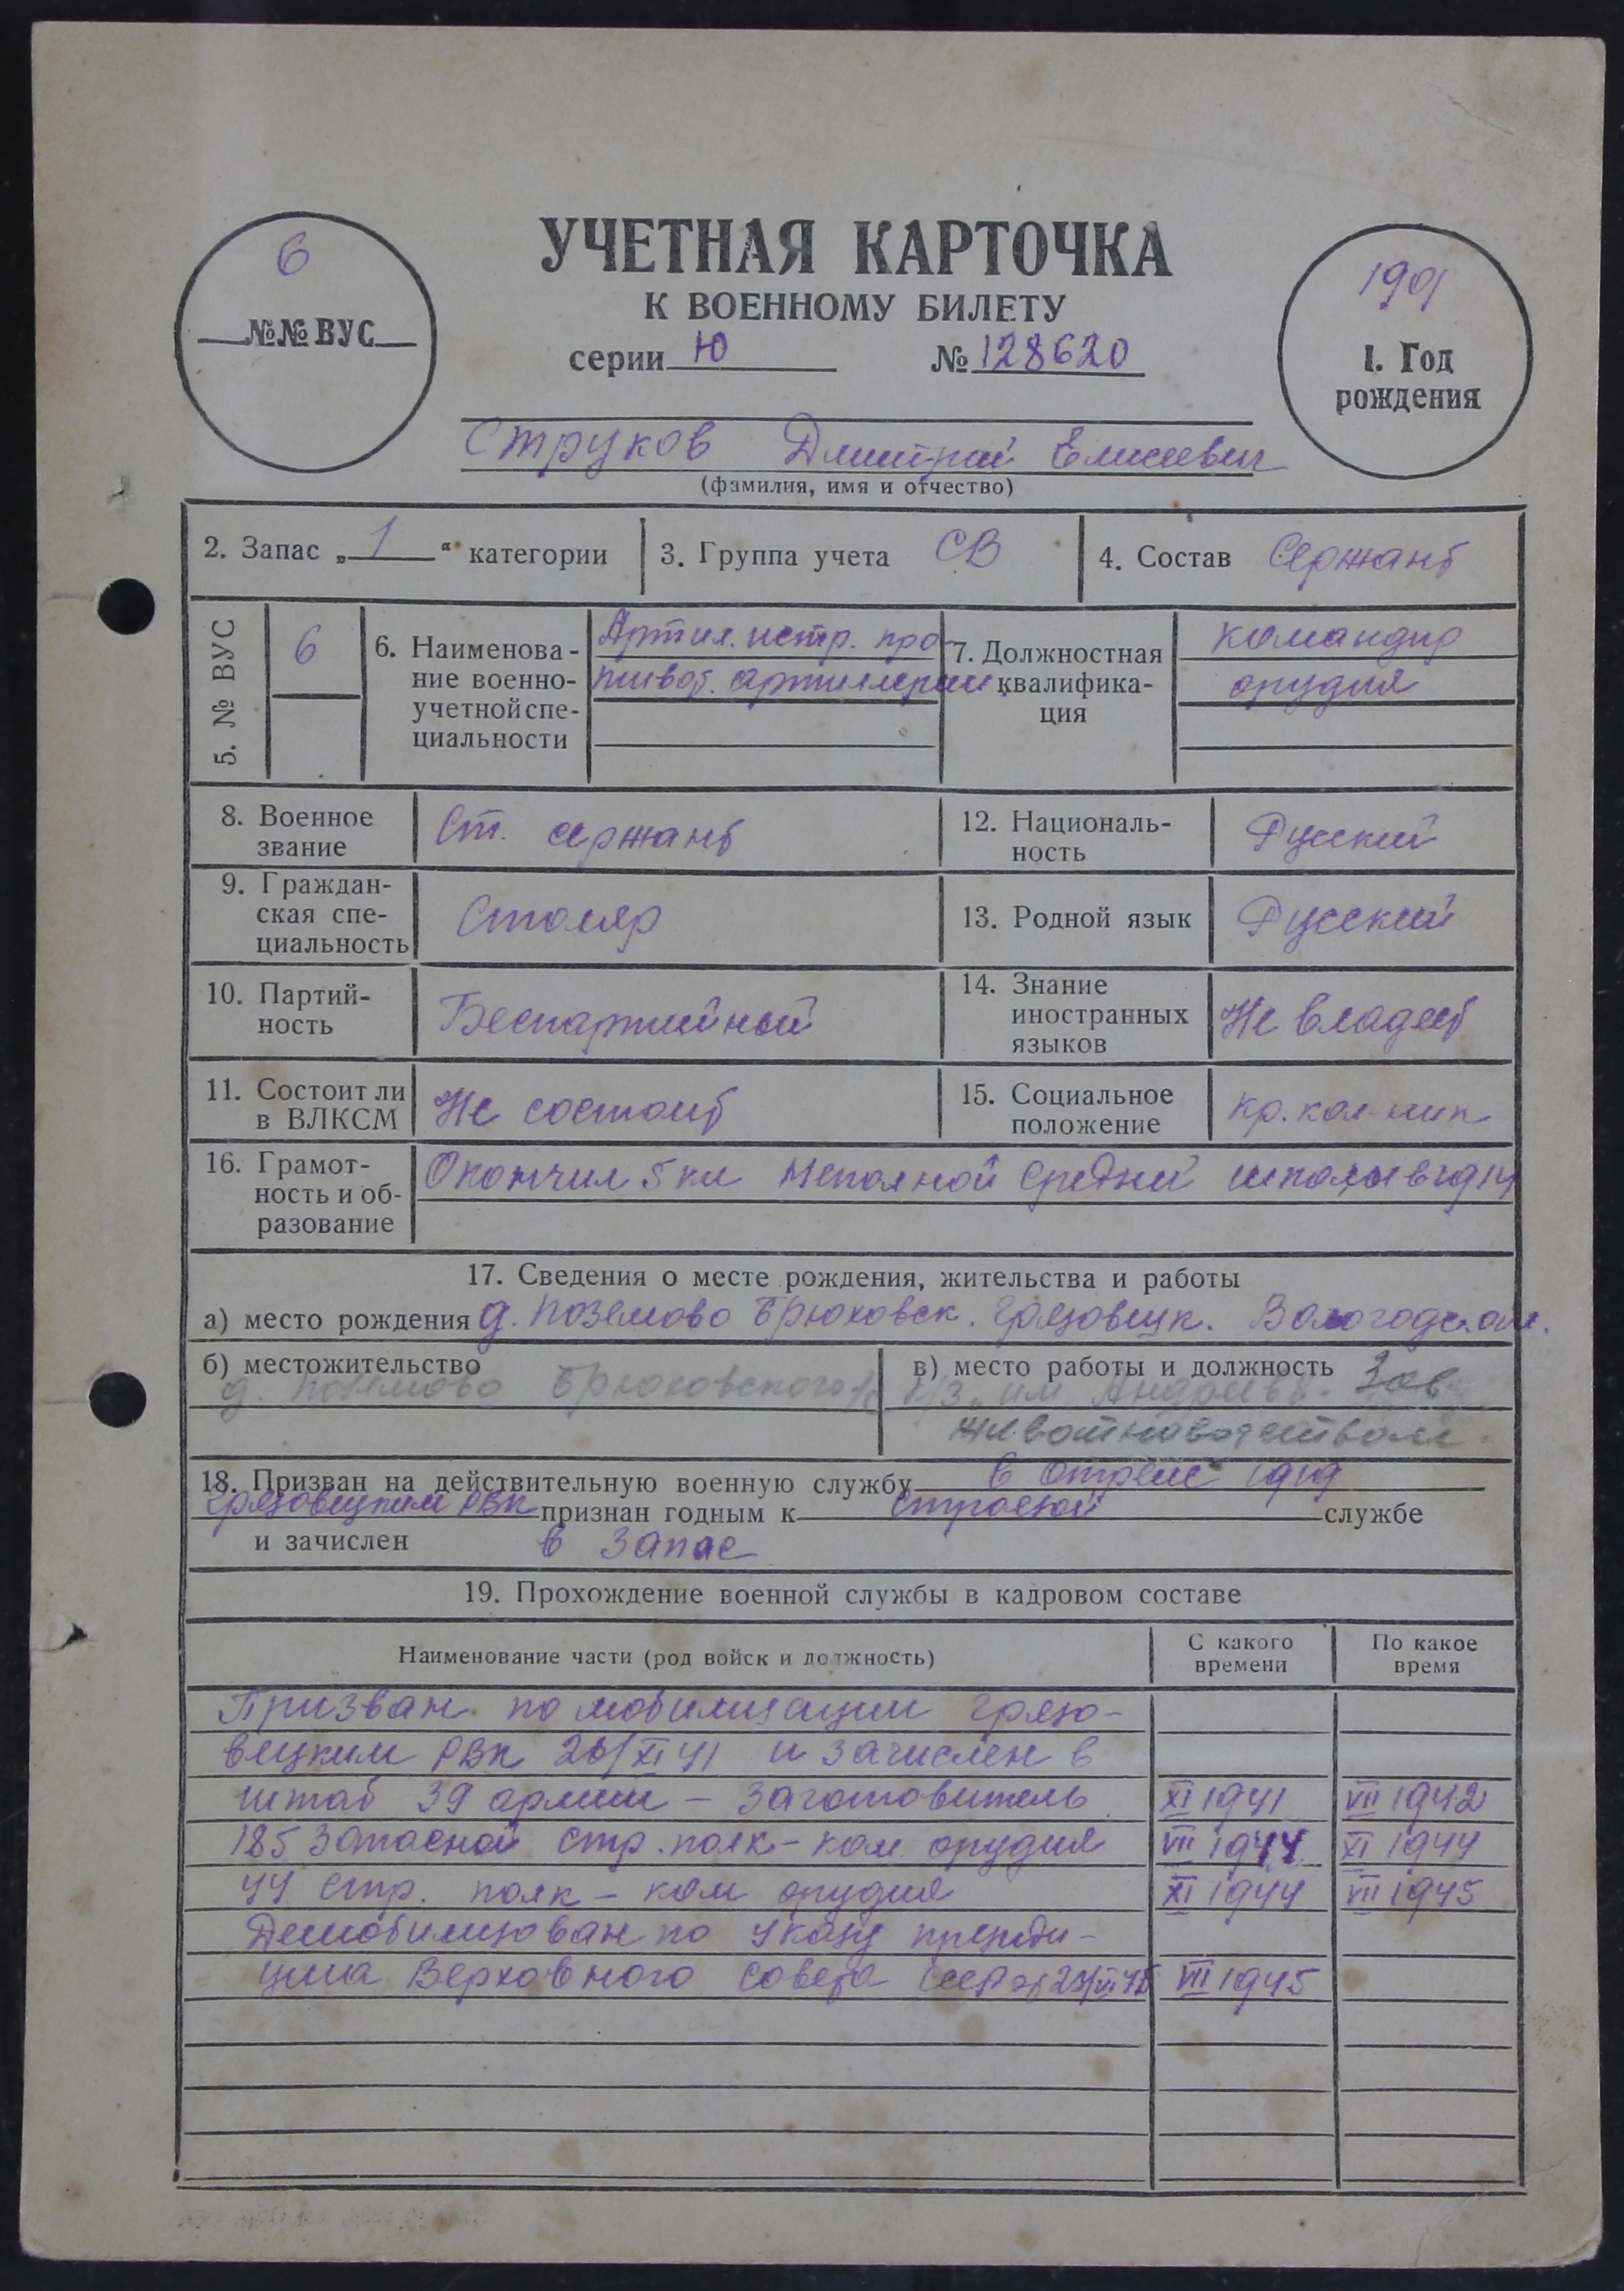 УЧЕТНАЯ КАРТОЧКА
К ВОЕННОМУ БИЛЕТУ
серии Ю № 128620
6
№№ ВУС
1901
1. Год
рождения
Струков Дмитрий Елисеевич
(фамилия, имя и отчество)
2. Запас „ 1 “ категории
3. Группа учета СВ
4. Состав Сержант
5. № ВУС
6
6. Наименова-
ние военно-
учетной спе-
циальности
Артил. истр. про
тивот. артиллерии
7. Должностная
квалифика-
ция
командир
орудия
8. Военное
звание
Ст. сержант
12. Националь-
ность
Русский
9. Граждан-
ская спе-
циальность
Столяр
13. Родной язык
Русский
10. Партий-
ность
Беспартийный
14. Знание
иностранных
языков
Не владеет
11. Состоит ли
в ВЛКСМ
Не состоит
15. Социальное
положение
кр. кол-ник
16. Грамот-
ность и об-
разование
Окончил 5 кл Неполной средней школы в 1914
17. Сведения о месте рождения, жительства и работы
а) место рождения д. Поземово Брюховск. Грязовецк. Вологодс. обл.
б) местожительство
д. Поземово Брюховского с/с
в) место работы и должность Зав
к/з им Андреева
животноводством
18. Призван на действительную военную службу в 1919
Грязовецким РВК признан годным к строевой службе
и зачислен в запас
19. Прохождение военной службы в кадровом составе
Наименование части (род войск и должность)
С какого
времени
По какое
время
Призван по мобилизации Грязо-
вецким РВК 26/XI 41 и зачислен в
штаб 39 армии - заготовитель XI 1941 VII 1942
185 Запасной стр. полк - ком. орудия VII 1944 XI 1944
44 стр. полк - ком орудия XI 1944 VII 1945
Демобилизован по указу президи-
ума Верховного совета СССР от 23/VI 45 VII 1945